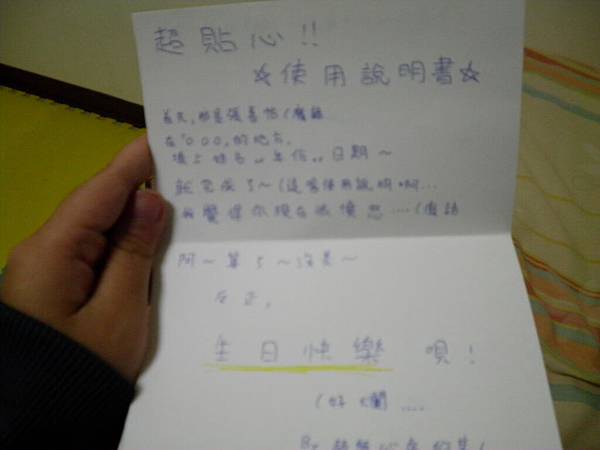 超貼心!!
☆使用說明書☆
首先,那是張善怡(廢話
在「○○○」的地方,
填上姓名、、年份、、日期~
就完成了~(這需使用說明啊...
我覺得你現在很憤怒....(廢話
阿~算了~沒差~
反正,
生日快樂 唄!
(好爛....
By